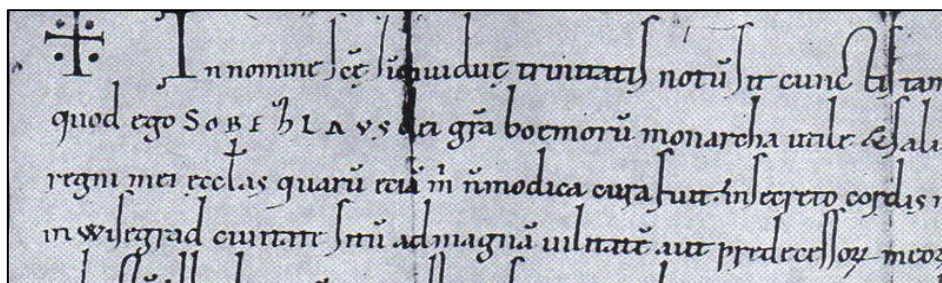 In nomine scę indiuiduę trinitatis notū sit cunctis tam
quod ego SOBEZLAVS dei grā boemorū monarcha utile & sali
regni mei ecclas quarū eciā m̄ n̄modica cura fuit. insecreto cordis
in wisegrad ciuitate sitū admagnā uilitatē aut predecessoꝝ meoꝝ